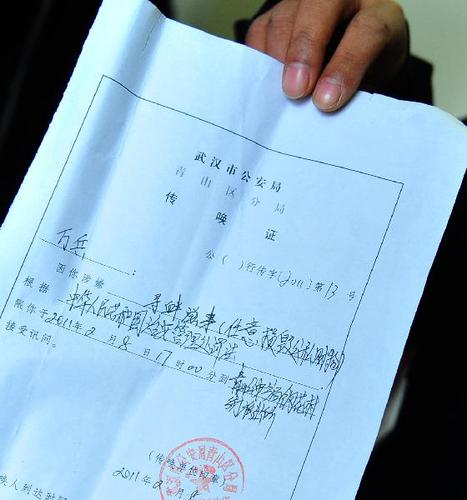 武汉市公安局
青山区分局
传唤证
公( )行传字(2011)第13号
万兵：
因你涉嫌寻衅滋事(任意损毁公私财物)
根据中华人民共和国治安管理处罚法
限你于2011年2月8日17时00分到
接受讯问。
(传唤单位印章)
2011年2月
唤人到达时间